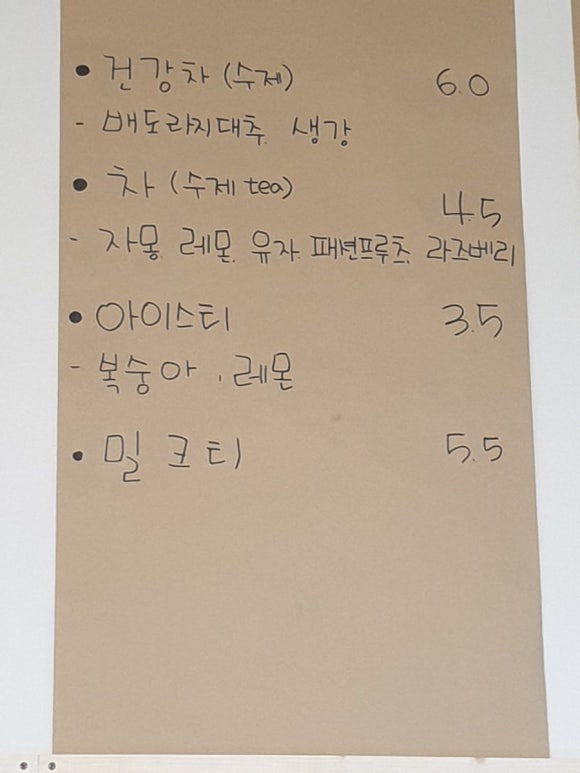 • 건강차 (수제) 6.0
- 배도라지대추. 생강
• 차 (수제 tea) 4.5
- 자몽. 레몬. 유자. 패션프루츠. 라즈베리
• 아이스티 3.5
- 복숭아 . 레몬
• 밀크티 5.5